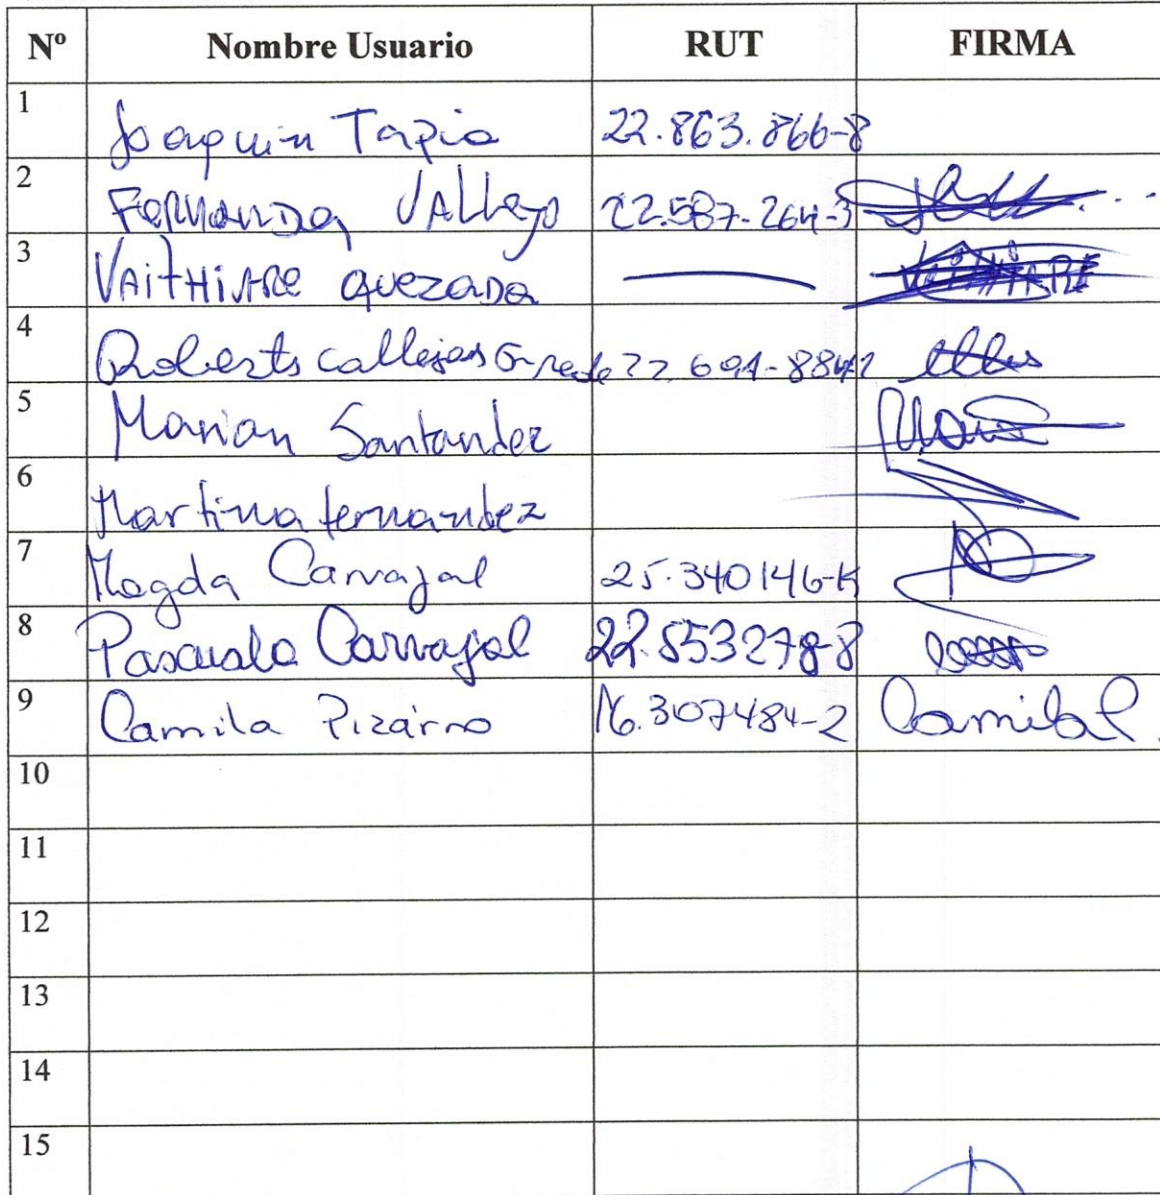 Nº Nombre Usuario RUT FIRMA
1 Joaquin Tapia 22.863.866-8
2 Fernanda Vallejo 22.587-264-3
3 VAitHiARe quezada —
4 Roberts callejas
5 Marian Santander
6 Martina fernandez
7 Magda Carvajal 25.340146-K
8 Pascuala Carvajal 22.853278-8
9 Camila Pizarro 16.307484-2 Camila P.
10
11
12
13
14
15